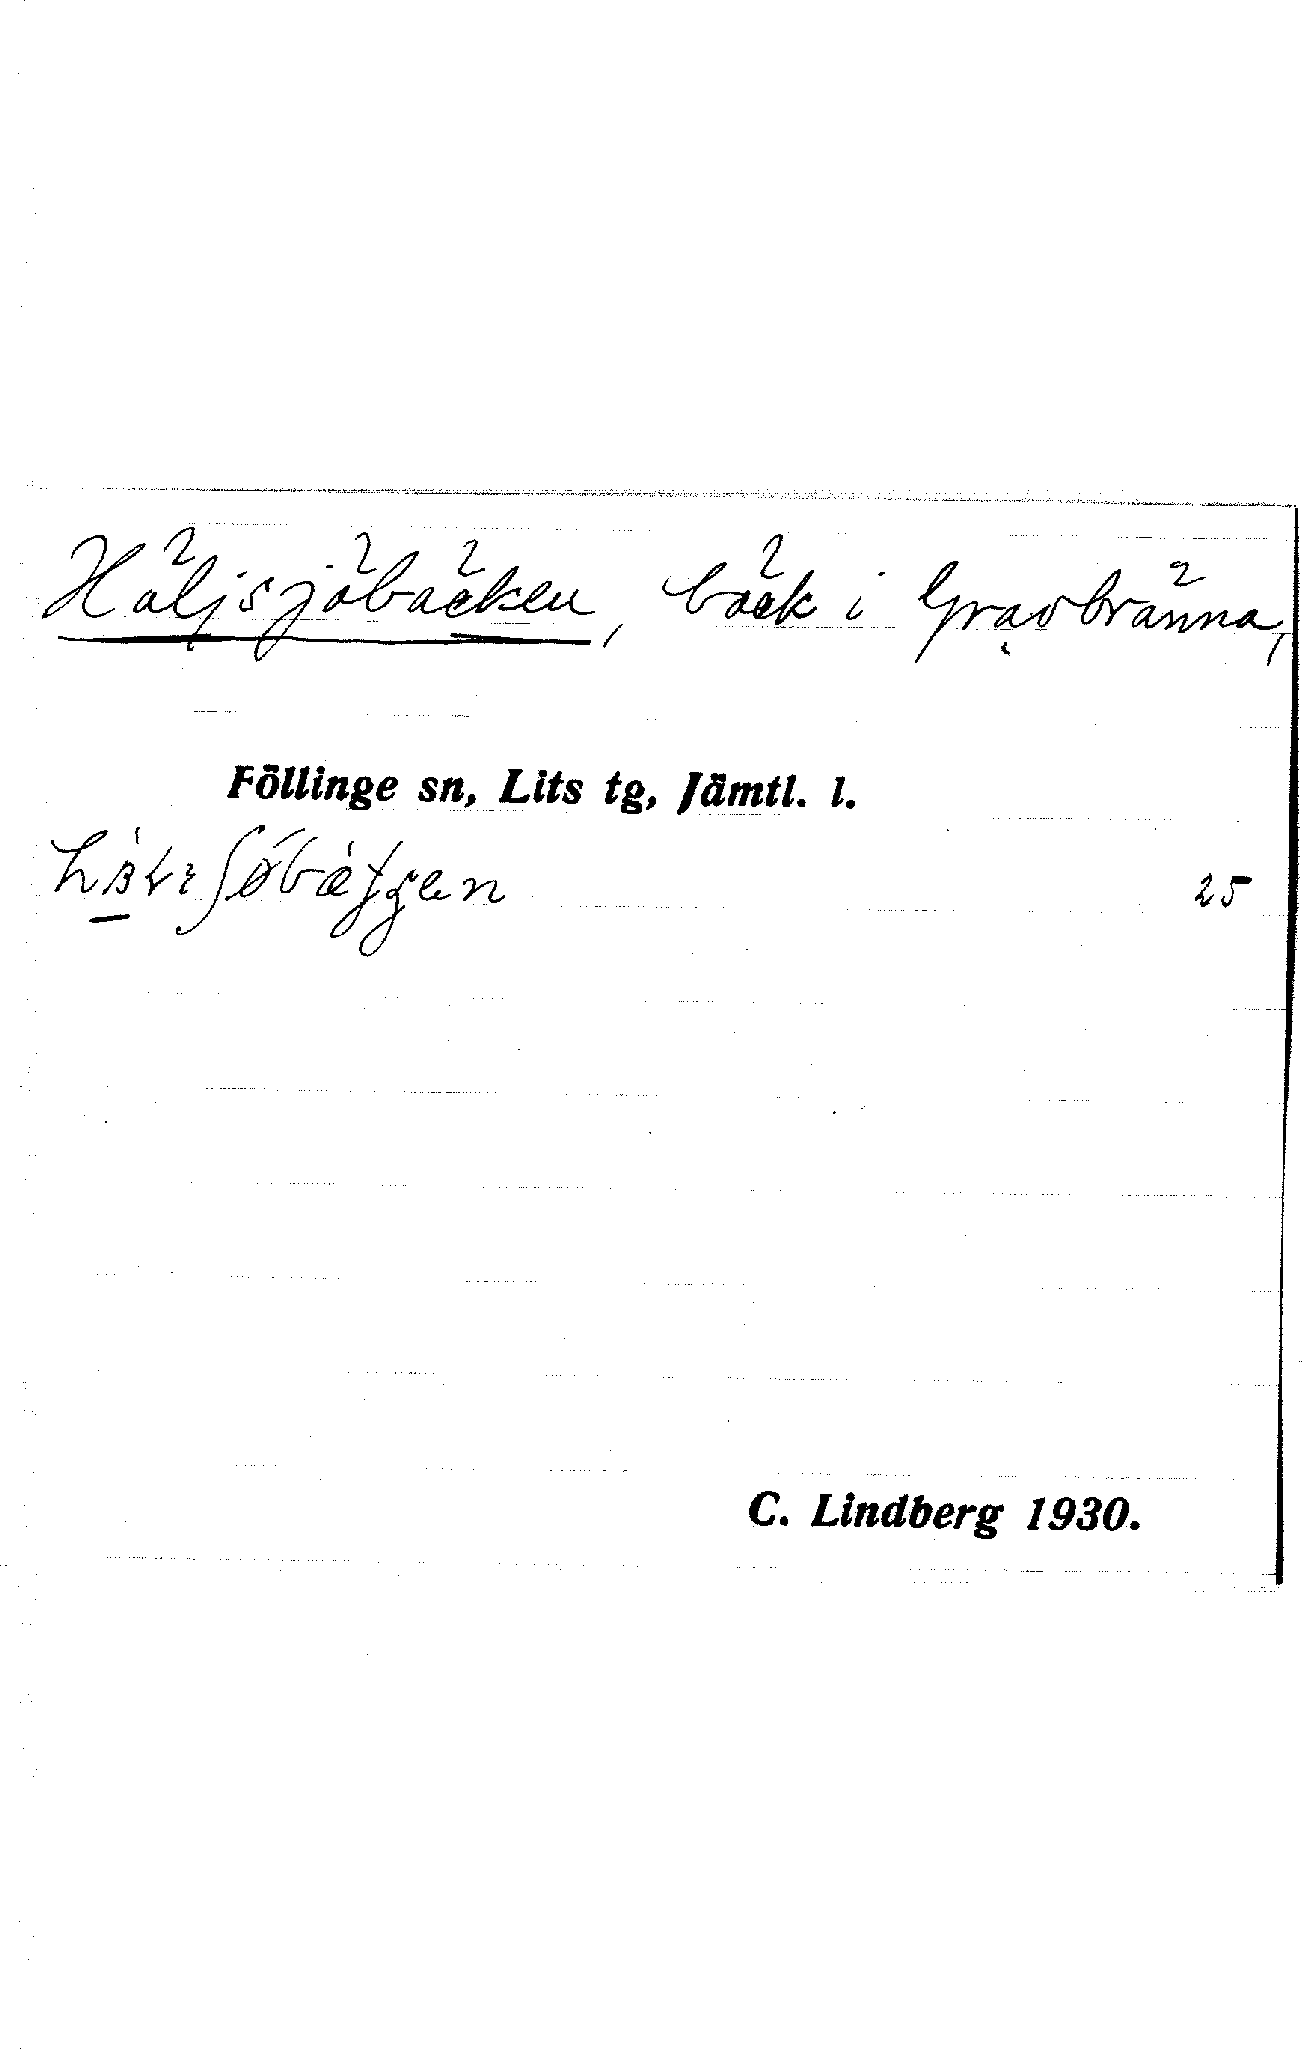 Häljsjöbäcken, bäck i Gravbränna,
Föllinge sn, Lits tg, Jämtl. l.
25
C. Lindberg 1930.